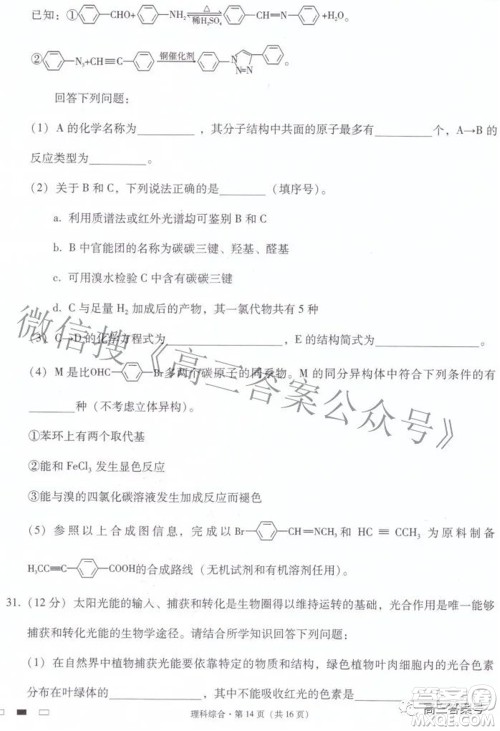 已知：①⌬-CHO+⌬-NH₂ △ 稀H₂SO₄ ⌬-CH=N-⌬+H₂O。
②⌬-N₃+CH≡C-⌬ 铜催化剂 ⌬-N N=N ⌬。
回答下列问题：
（1）A 的化学名称为________，其分子结构中共面的原子最多有________个，A→B的
反应类型为________。
（2）关于 B 和 C，下列说法正确的是________（填序号）。
a. 利用质谱法或红外光谱均可鉴别 B 和 C
b. B 中官能团的名称为碳碳三键、羟基、醛基
c. 可用溴水检验 C 中含有碳碳三键
d. C 与足量 H₂ 加成后的产物，其一氯代物共有 5 种
（3）C→D的化学方程式为________，E 的结构简式为________。
（4）M 是OHC-⌬-Br多两个碳原子的同系物。M 的同分异构体中符合下列条件的有
________种（不考虑立体异构）。
①苯环上有两个取代基
②能和 FeCl₃ 发生显色反应
③能与溴的四氯化碳溶液发生加成反应而褪色
（5）参照以上合成图信息，完成以Br-⌬-CH=NCH₃ 和 HC≡CCH₃ 为原料制备
H₃CC≡C-⌬-COOH的合成路线（无机试剂和有机溶剂任用）。
31.（12 分）太阳光能的输入、捕获和转化是生物圈得以维持运转的基础，光合作用是唯一能够
捕获和转化光能的生物学途径。请结合所学知识回答下列问题：
（1）在自然界中植物捕获光能要依靠特定的物质和结构，绿色植物叶肉细胞内的光合色素
在叶绿体的________，其中不能吸收红光的色素的
理科综合·第 14 页（共 16 页）
微信搜《高三答案公众号》
高三答案号